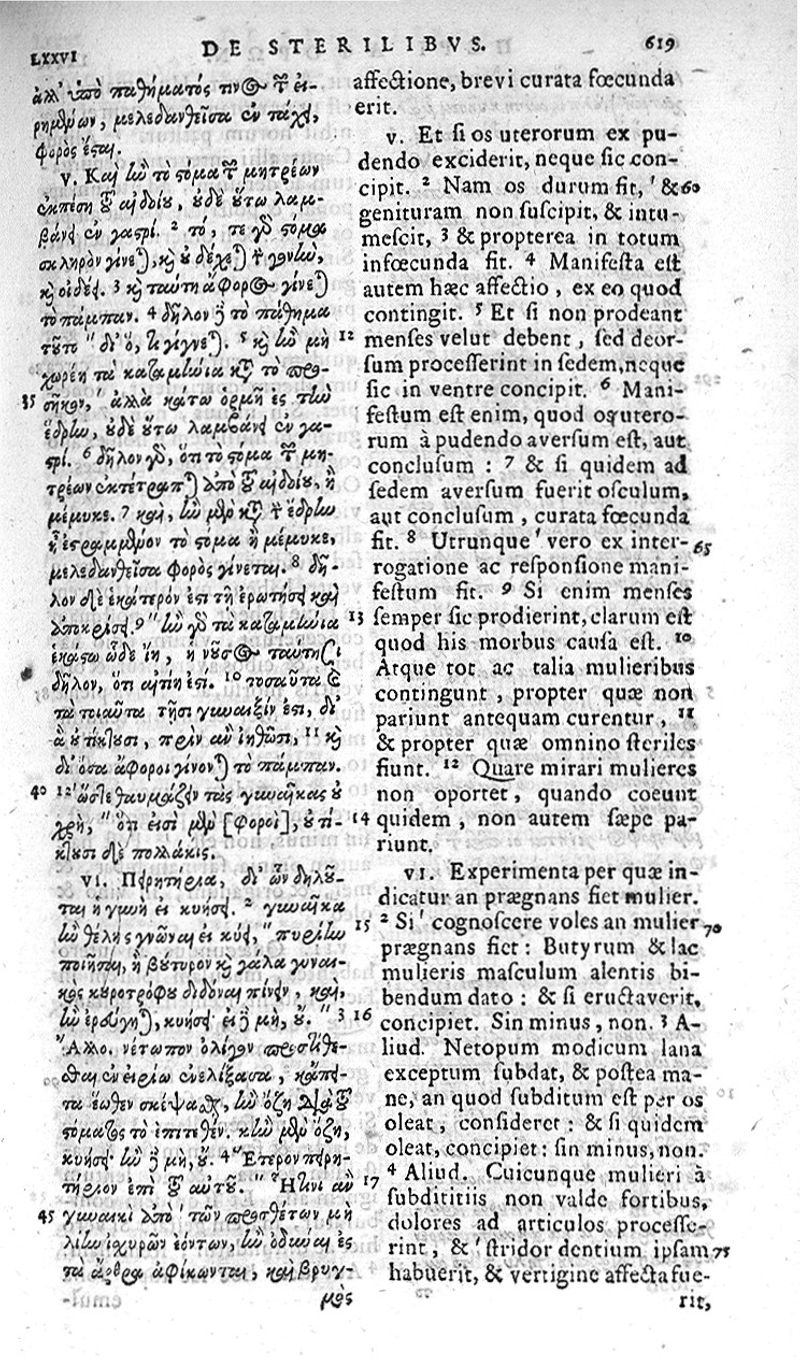 LXXVI DE STERILIBVS. 619
ἀλλ' ὑπὸ παθήματός τινος τῶν εἰ-
ρημένων, μελεδανθεῖσα ἐν τάχει,
φορὸς ἔσται.
v. Καὶ ἢν τὸ στόμα τῶν μητρέων
ἐκπέσῃ τοῦ αἰδοίου, οὐδὲ οὕτω λαμ-
βάνει ἐν γαστρί. 2 τό, τε γὰρ στόμα
σκληρὸν γίνεται, καὶ οὐ δέχεται τὴν γονὴν,
καὶ οἰδέει. 3 καὶ ταύτῃ ἄφορος γίνεται
τὸ πάμπαν. 4 δῆλον δὲ τὸ πάθημα
τοῦτο " δι' ὅ, τι γίγνεται. 5 καὶ ἢν μὴ 12
χωρέῃ τὰ καταμήνια κατὰ τὸ προσ-
35 ῆκον, ' ἀλλὰ κάτω ὁρμῇ ἐς τὴν
ἕδρην, οὐδὲ οὕτω λαμβάνει ἐν γα-
στρί. 6 δῆλον γὰρ, ὅτι τὸ στόμα τῶν μη-
τρέων ἐκτέτραπται ἀπὸ τοῦ αἰδοίου, ἢ
μέμυκε. 7 καὶ, ἢν μὲν κατὰ τὴν ἕδρην
ᾖ ἐστραμμένον τὸ στόμα ἢ μέμυκε,
μελεδανθεῖσα φορὸς γίνεται. 8 δῆ-
λον δὲ ἑκάτερόν ἐστι τῇ ἐρωτήσει καὶ
ἀποκρίσει. 9 " ἢν γὰρ τὰ καταμήνια 13
ἑκάστῳ ὧδε ἴῃ, ἡ νοῦσος ταύτῃσι
δῆλον, ὅτι αἰτίη ἐστί. 10 τοσαῦτα καὶ
τὰ τοιαῦτα τῇσι γυναιξίν ἐστι, δι'
ἃ οὐ τίκτουσι, πρὶν ἂν ἰηθῶσι, 11 καὶ
δι' ὅσα ἄφοροι γίνονται τὸ πάμπαν.
40 12 ὥστε θαυμάζειν τὰς γυναῖκας οὐ
χρὴ, " ὅτι εἰσὶ μὲν [φοροὶ], οὐ τί- 14
κτουσι δὲ πολλάκις.
VI. Πειρητήρια, δι' ὧν δηλοῦ-
ται ἡ γυνὴ εἰ κυήσει. 2 γυναῖκα
ἢν θέλῃς γνῶναι εἰ κύει, " πυρίην 15
ποιῆσαι, ἢ βούτυρον καὶ γάλα γυναι-
κὸς κουροτρόφου διδόναι πίνειν, καὶ,
ἢν ἐρεύγηται, κυήσει· εἰ δὲ μὴ, οὔ. " 3 16
Ἄλλο. νέτωπον ὀλίγον προστιθέ-
σθαι ἐν εἰρίῳ ἐνελίξασα, κἄπει-
τα ἕωθεν σκέψασθαι, ἢν ὄζῃ διὰ τοῦ
στόματος τὸ ἐπιτεθέν. κἢν μὲν ὄζῃ,
κυήσει· ἢν δὲ μὴ, οὔ. 4 Ἕτερον πειρη-
τήριον ἐπὶ τοῦ αὐτοῦ. " Ἥτινι ἂν 17
45 γυναικὶ ἀπὸ ' τῶν προσθέτων μὴ
λίην ἰσχυρῶν ἐόντων, ἢν ὀδύναι ἐς
τὰ ἄρθρα ἀφίκωνται, καὶ βρυγ-
μὸς
affectione, brevi curata fœcunda
erit.
v. Et si os uterorum ex pu-
dendo exciderit, neque sic con-
cipit. 2 Nam os durum fit, ' & 60
genituram non suscipit, & intu-
mescit, 3 & propterea in totum
infœcunda fit. 4 Manifesta est
autem hæc affectio, ex eo quod
contingit. 5 Et si non prodeant
menses velut debent, sed deor-
sum processerint in sedem, neque
sic in ventre concipit. 6 Mani-
festum est enim, quod os utero-
rum à pudendo aversum est, aut
conclusum : 7 & si quidem ad
sedem aversum fuerit osculum,
aut conclusum, curata fœcunda
fit. 8 Utrunque ' vero ex inter- 65
rogatione ac responsione mani-
festum fit. 9 Si enim menses
semper sic prodierint, clarum est
quod his morbus causa est. 10
Atque tot ac talia mulieribus
contingunt, propter quæ non
pariunt antequam curentur, 11
& propter quæ omnino steriles
fiunt. 12 Quare mirari mulieres
non oportet, quando coeunt
quidem, non autem sæpe pa-
riunt.
VI. Experimenta per quæ in-
dicatur an prægnans fiet mulier.
2 Si ' cognoscere voles an mulier 70
prægnans fiet: Butyrum & lac
mulieris masculum alentis bi-
bendum dato : & si eructaverit,
concipiet. Sin minus, non. 3 A-
liud. Netopum modicum lana
exceptum subdat, & postea ma-
ne, an quod subditum est per os
oleat, consideret : & si quidem
oleat, concipiet: sin minus, non.
4 Aliud. Cuicunque mulieri à
subdititiis non valde fortibus,
dolores ad articulos processe-
rint, & ' stridor dentium ipsam 75
habuerit, & vertigine affecta fue-
rit,